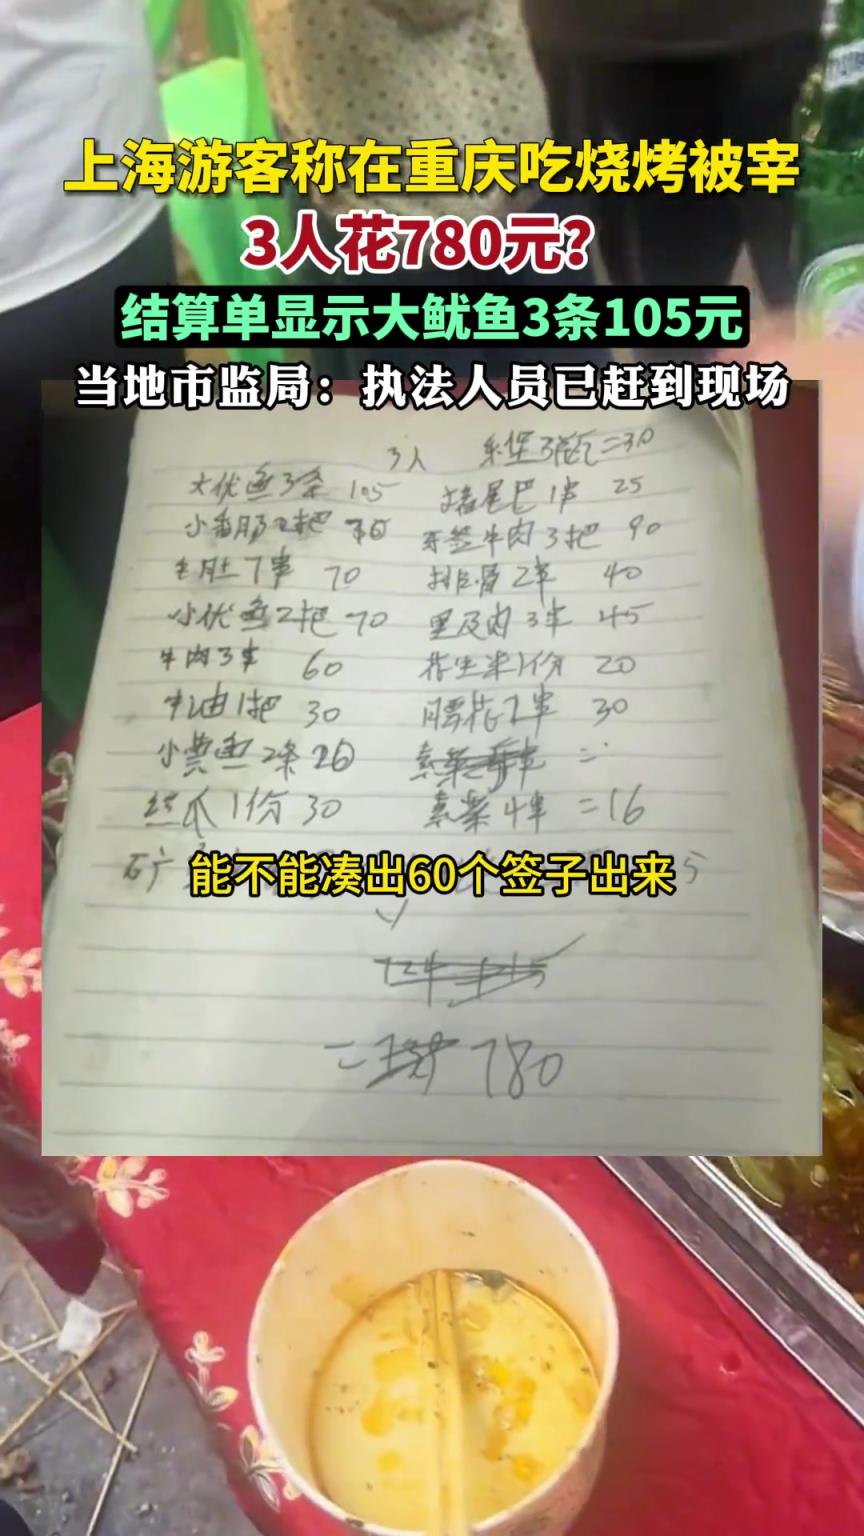 上海游客称在重庆吃烧烤被宰
3人花780元?
结算单显示大鱿鱼3条105元
当地市监局：执法人员已赶到现场
3人 乐堡3瓶=30
大优鱼3条 105 猪尾巴1串 25
小香肠2把 牙签牛肉3把 90
毛肚7串 70 排骨2串 40
小优鱼2把 70 里及肉3串 45
牛肉3串 60 花生米1份 20
牛油1把 30 腰花2串 30
小黄鱼2条 20 素菜
丝瓜1份 30 素菜4串 =16
矿
能不能凑出60个签子出来
5
= 780